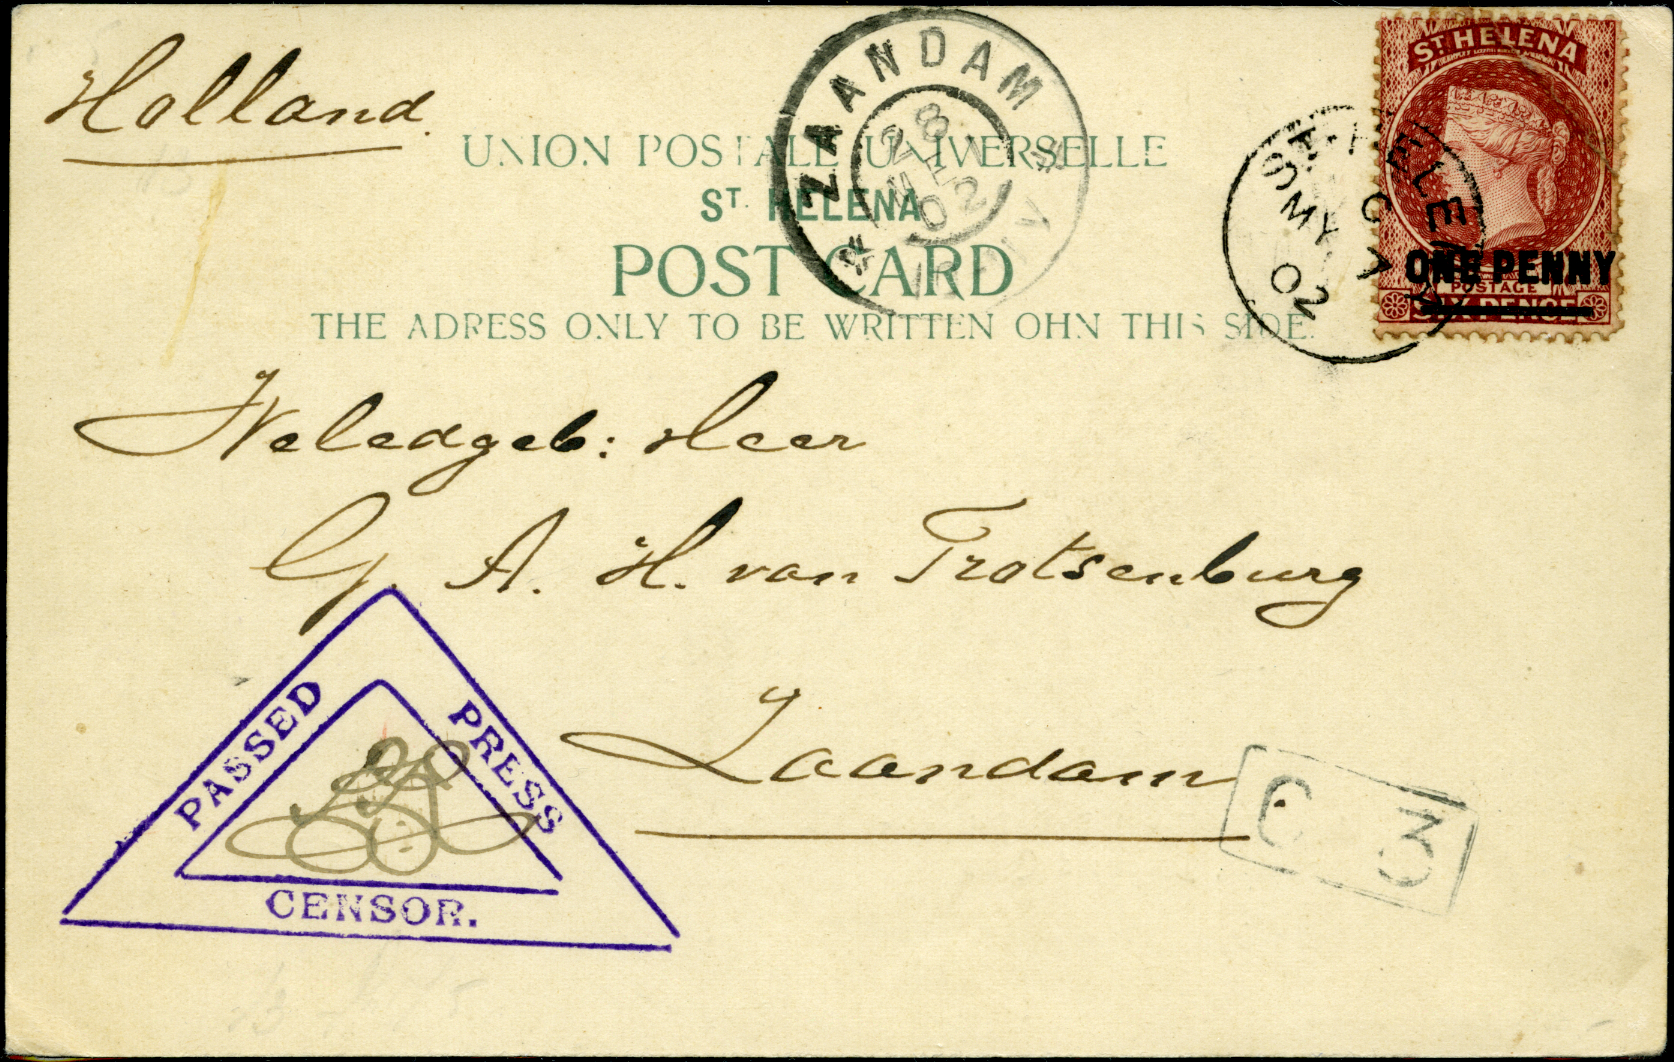 Holland.
UNION POSTALE UNIVERSELLE
ST. HELENA
POST CARD
THE ADRESS ONLY TO BE WRITTEN OHN THIS SIDE.
ZAANDAM
8
02
ST HELENA
ONE PENNY
POSTAGE
SIX PENCE
ST. HELENA
C
MY
02
Weledgeb: Heer
G. A. H. van Trotsenburg
Zaandam
PASSED PRESS
CENSOR.
C 3